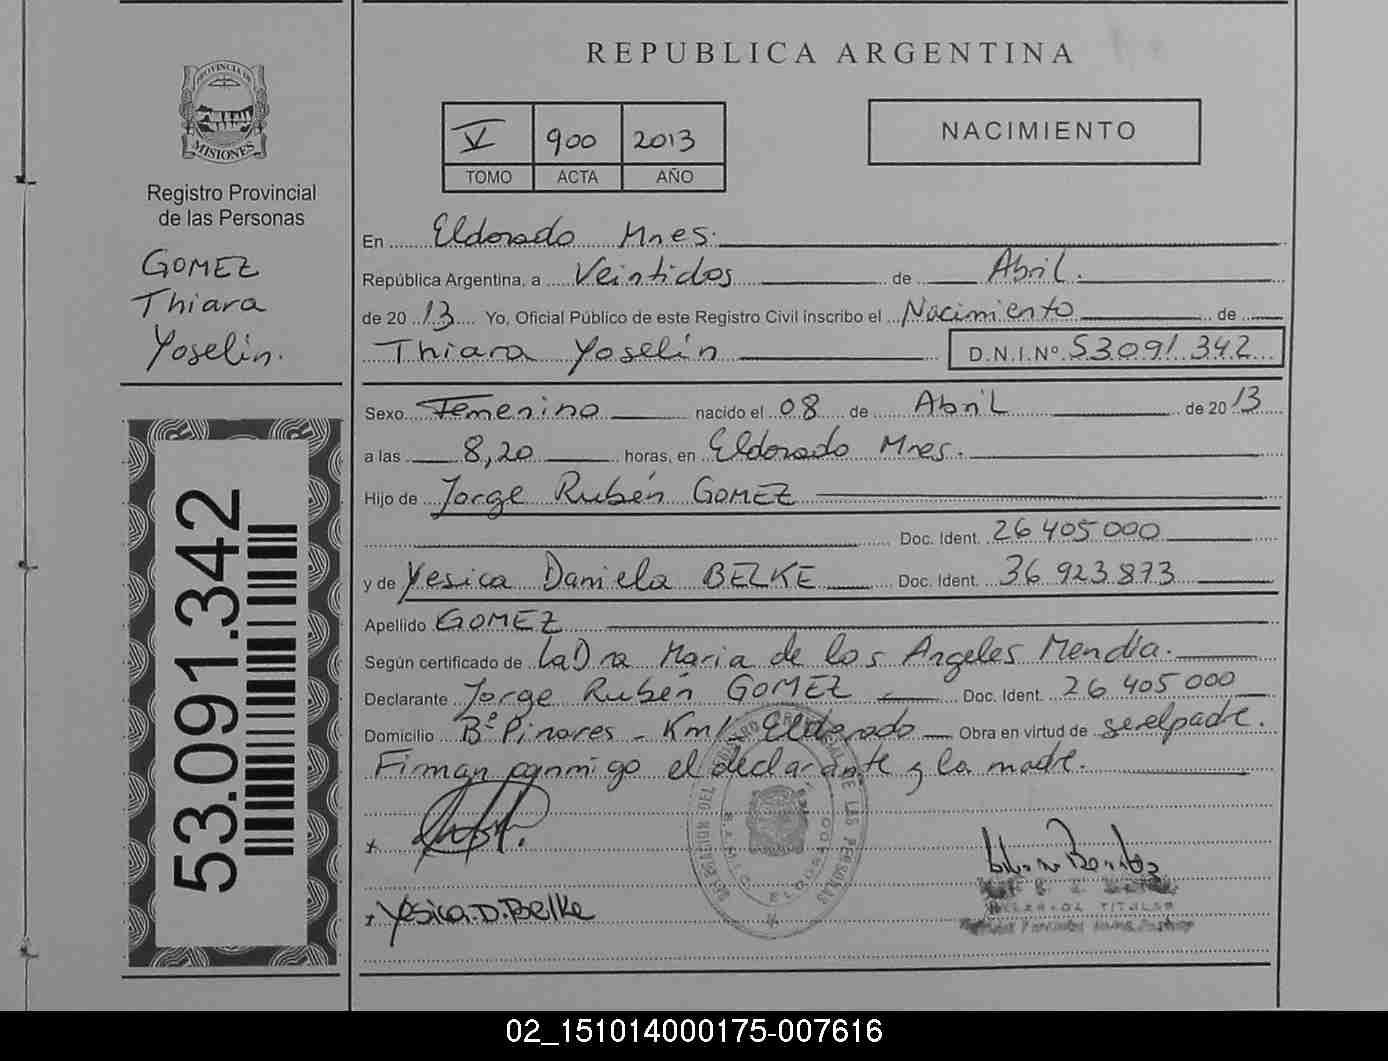 REPUBLICA ARGENTINA
PROVINCIA DE
MISIONES
Registro Provincial
de las Personas
GOMEZ
Thiara
Yoselín.
V 900 2013
TOMO ACTA AÑO
NACIMIENTO
En Eldorado Mnes.
República Argentina, a Veintidos de Abril.
de 2013 Yo, Oficial Público de este Registro Civil inscribo el Nacimiento de
Thiara Yoselín D.N.I.Nº 53.091.342
Sexo Femenino nacido el 08 de Abril de 2013
a las 8,20 horas, en Eldorado Mnes.
Hijo de Jorge Rubén GOMEZ
Doc. Ident. 26 405 000
y de Yesica Daniela BELKE Doc. Ident. 36 923 873
Apellido GOMEZ
Según certificado de La Dra Maria de los Angeles Mendla.
Declarante Jorge Rubén GOMEZ Doc. Ident. 26 405 000
Domicilio Bº Pinares - Km Eldorado Obra en virtud de serelpadre.
Firman conmigo el declarante y la madre.
Yesica.D.Belke
TITULAR
53.091.342
02_151014000175-007616